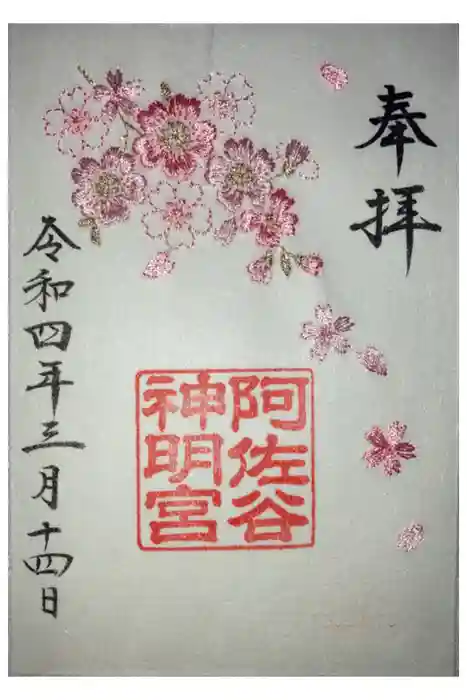 奉拝
阿佐谷
神明宮
令和四年三月十四日